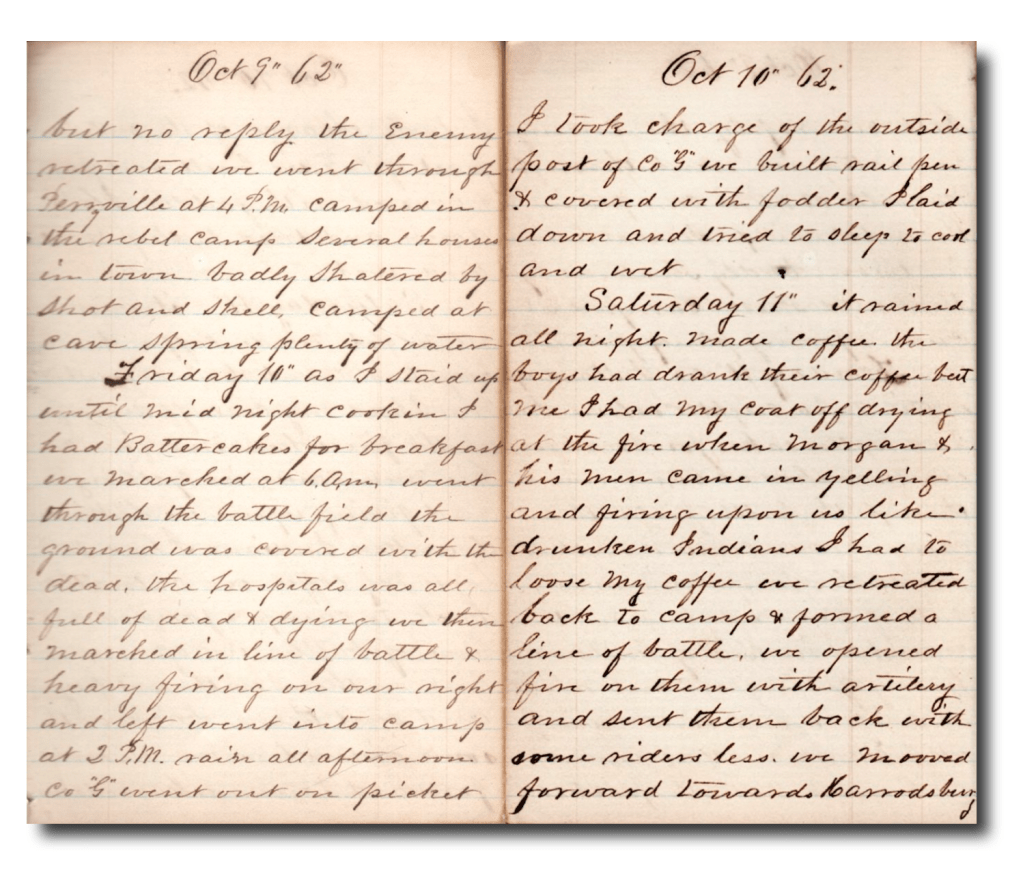 Oct 9" 62"
but no reply the Enemy
retreated we went through
Perryville at 4 P.M. camped in
the rebel camp Several houses
in town badly Shatered by
Shot and Shell, camped at
cave spring plenty of water
Friday 10" as I staid up
until mid night cookin I
had Battercakes for breakfast
we marched at 6 A.m. went
through the battle field the
ground was covered with the
dead, the hospitals was all,
full of dead & dying we then
marched in line of battle &
heavy firing on our right
and left went into camp
at 2 P.M. rain all afternoon
Co "G" went out on picket
Oct 10" 62.
I took charge of the outside
post of Co "G" we built rail pen
& covered with fodder I laid
down and tried to sleep to cool
and wet
Saturday 11" it rained
all night. made coffee the
boys had drank their coffee but
me I had my coat off drying
at the fire when Morgan &
his men came in yelling
and firing upon us like
drunken Indians I had to
loose my coffee we retreated
back to camp & formed a
line of battle, we opened
fire on them with artilery
and sent them back with
some riders less. we mooved
forward towards Harrodsburg